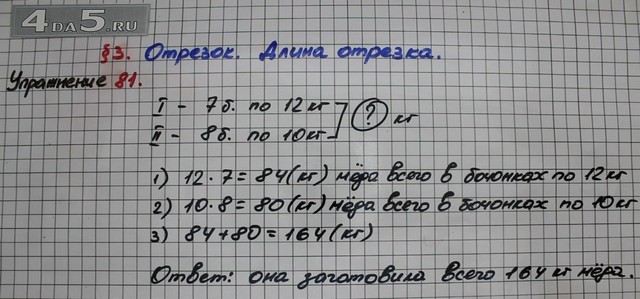 4DA5.RU
§3. Отрезок. Длина отрезка.
Упражнение 81.
I - 7б. по 12кг
? кг
II - 8б. по 10кг
1) 12 · 7 = 84(кг) мёра всего в бочонках по 12кг
2) 10 · 8 = 80(кг) мёра всего в бочонках по 10кг
3) 84 + 80 = 164(кг)
Ответ: она заготовила всего 164 кг мёра.